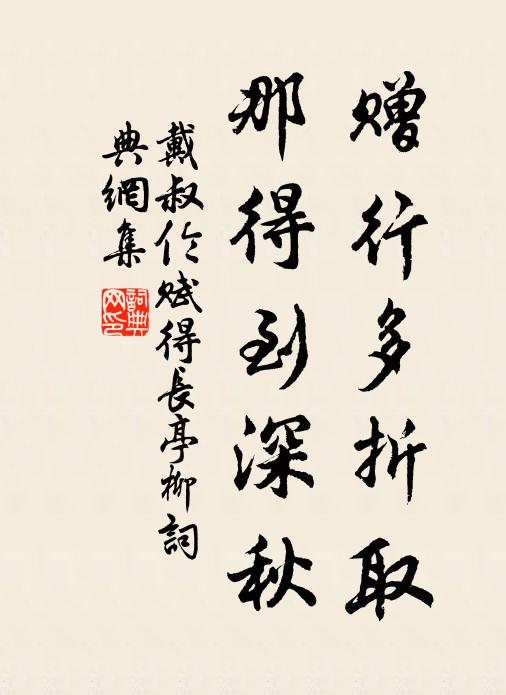 赠行多折取
那得到深秋
戴叔伦赋得长亭柳詞
典網集
詞典网印